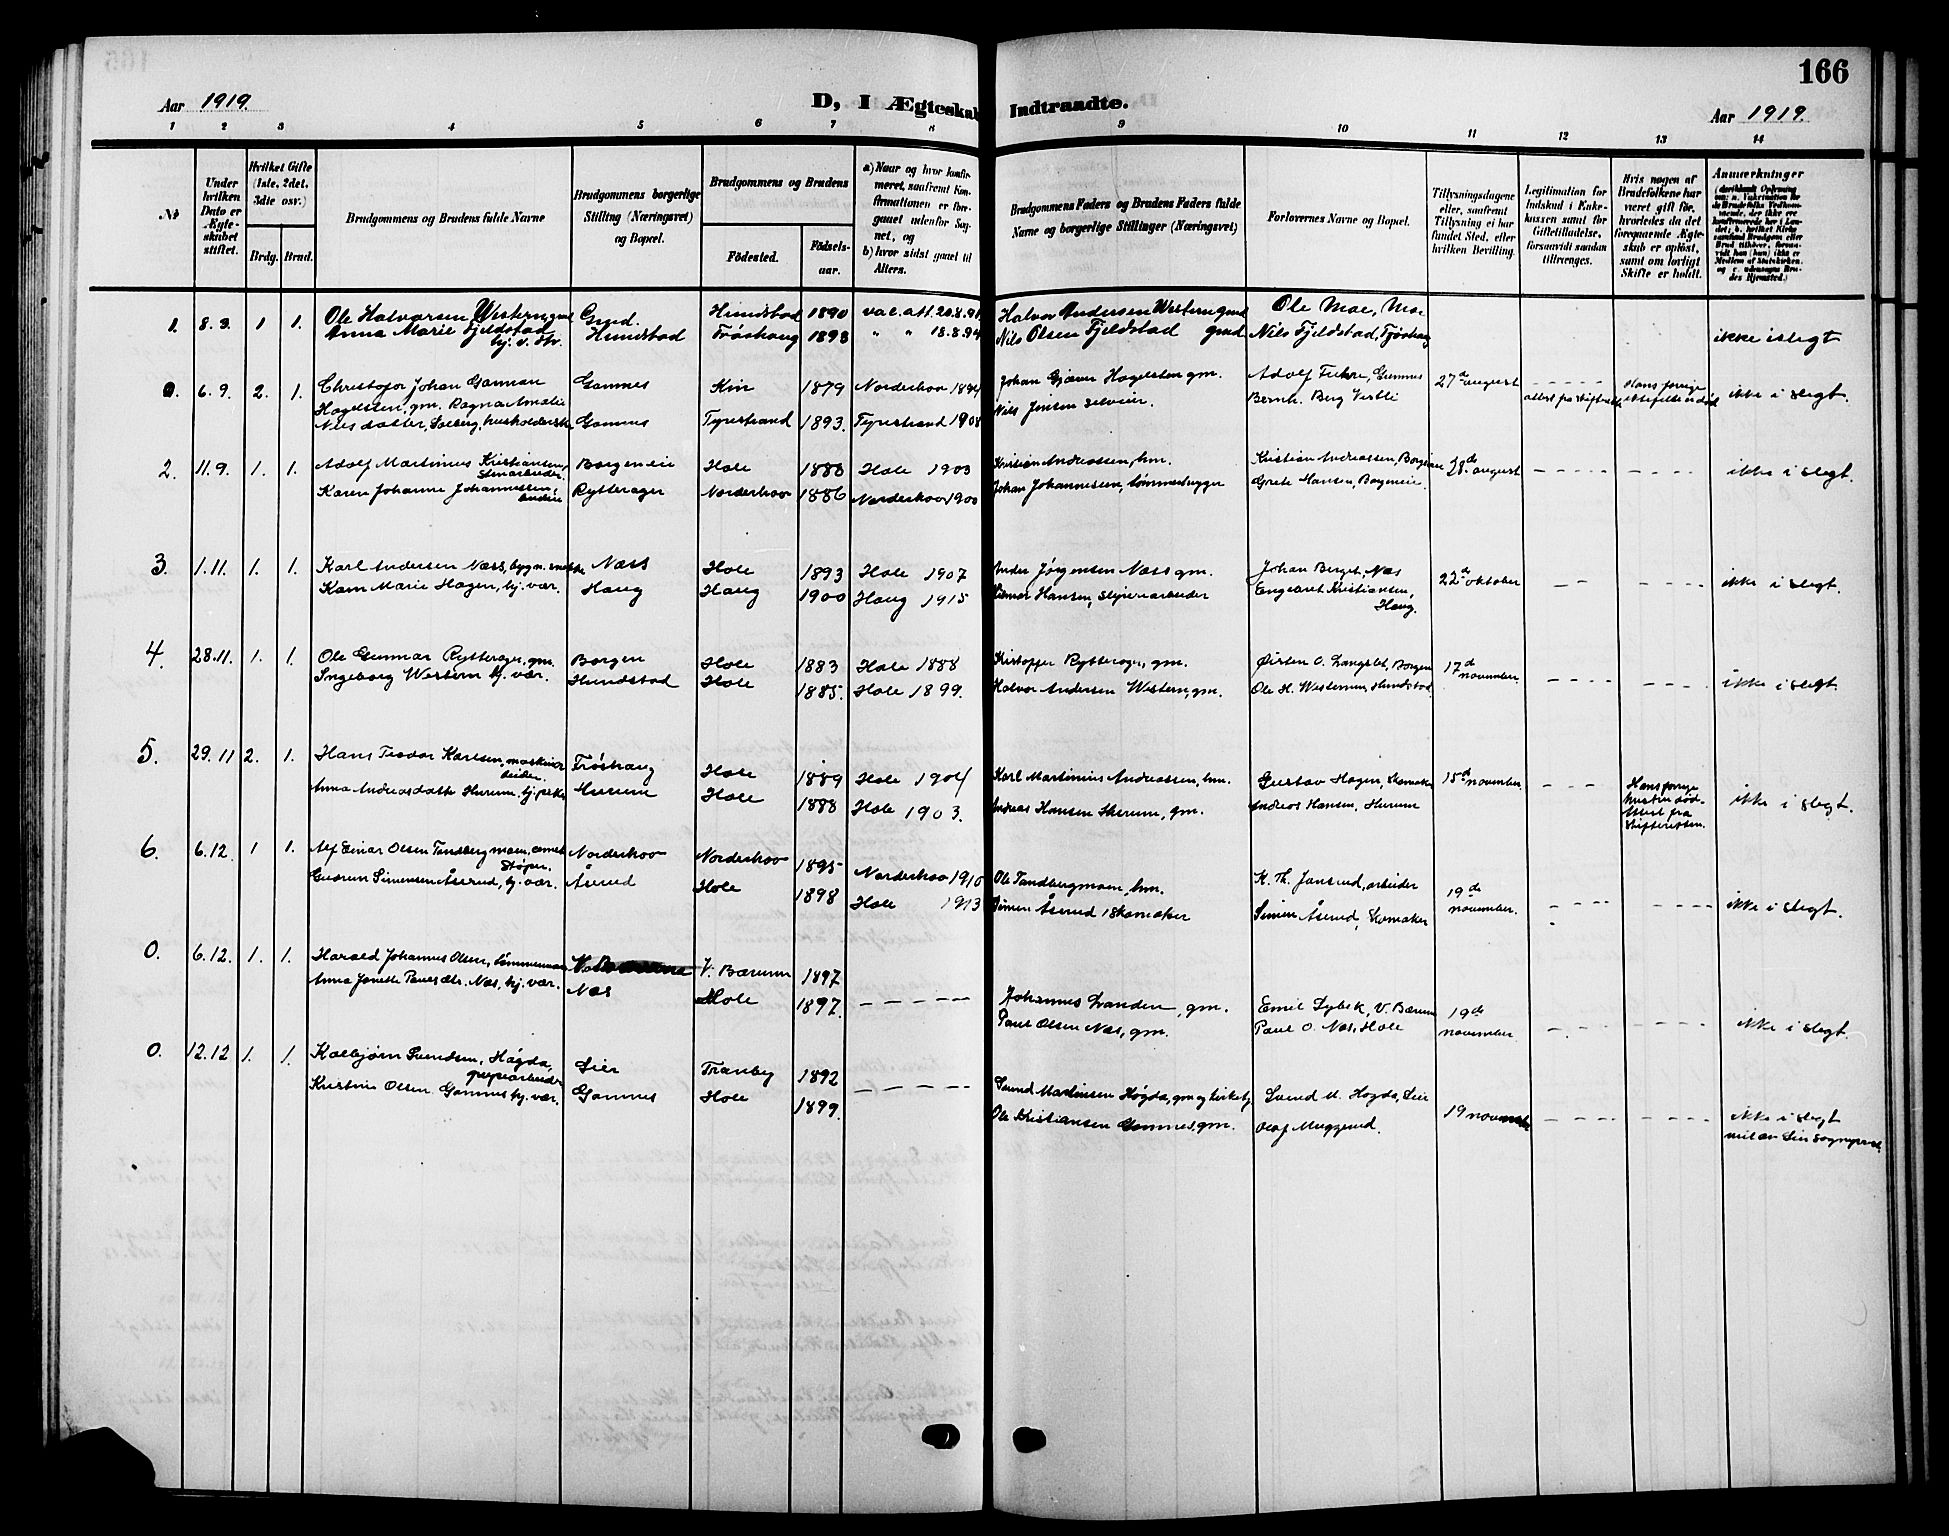 166
Aar 1919.
D, I Ægteskab Indtraadte.
Aar 1919.
1 2 3 4 5 6 7 8 9 10 11 12 13 14
No
Under hvilken Dato er Ægteskabet stiftet.
Hvilket Gifte (1ste, 2det, 3die osv.)
Brdg. Brud.
Brudgommens og Brudens fulde Navne
Brudgommens borgerlige Stilling (Næringsvei) og Bopæl.
Brudgommens og Brudens
Fødested.
Fødselsaar.
a) Naar og hvor konfirmeret, saafremt Konfirmationen er foregaaet udenfor Sognet, og
b) hvor sidst gaaet til Alters.
Brudgommens Faders og Brudens Faders fulde Navne og borgerlige Stillinger (Næringsvei)
Forlovernes Navne og Bopæl.
Tillysningsdagene eller, saafremt Tillysning ei har fundet Sted, efter hvilken Bevilling.
Legitimation for Indskud i Enkekassen samt for Giftetilladelse, forsaavidt saadan tiltrænges.
Hvis nogen af Brudefolkene har været gift før, hvorledes da det foregaaende Ægteskab er opløst, samt om lovligt Skifte er holdt.
Anmærkninger
1. 8.3. 1 1. Ole Halvorsen Western, gmd Gmd. Hundstad 1890 vac. att. 20.8.91 Halvor Andersen Western gmd Ole Moe, Moe
Anna Marie Fjeldstad Hundstad Frøshaug 1893 " " 18.8.94 Nils Olsen Fjeldstad gmd Nils Fjeldstad, Frøshaug ikke i slegt
hj. v. str.
0. 6.9. 2. 1. Christofer Johan Gamman Gomnes Kin 1879 Nordrehov 1894 Johan Gjæver Hagelsten gm. Adolf Fekre, Gomnes 27de august - - - - - Hans forrige ikke i slegt.
Hagelsten, gm. Ragna Amalie Bernh. Berg Vestli attest fra skifteretten ektefelle er død
Nilsdatter, Solberg, husholderske Gomnes Tyristrand 1893. Tyristrand 1908 Nils Jensen selveier.
2. 11.9. 1. 1. Adolf Martinius Kristiansen, Borgeneie Hole 1888 Hole 1903 Kristian Andreassen, hm. Kristian Andreassen, Borgeneie 28de august - - - - - - - - - ikke i slegt.
stenarbeider.
Karen Johanne Johannessen, Rytterager Norderhov 1886 Norderhov 1900 Johan Johannessen, tømmerhugger Grete Hansen, Borgeneie.
3. 1.11. 1. 1. Karl Andersen Næss, bygn. snekker Næss Hole 1893 Hole 1907 Anders Jørgensen Næss gm. Johan Berget, Næs 22de oktober - - - - - - ikke i slegt.
Karn Marie Hagen, hj. vær. Haug Haug 1900 Haug 1915 Hansen, sliperiarbeider Engebret Kristiansen,
Haug.
4. 28.11. 1. 1. Ole Gunnar Rytterager, gm. Borgen Hole 1883 Hole 1888 Kristoffer Rytterager, gm. Østen O. Langslet, Borgen 17de november.
Ingeborg Western hj. vær. Hundstad Hole 1885. Hole 1899. Halvor Andersen Western, gm. Ole H. Western, Hundstad - - - - - - - ikke i slegt.
5. 29.11 2. 1. Hans Teodor Karlsen, maskinarbeider. Frøshaug Hole 1889 Hole 1904 Karl Martinius Andreassen, hm. Gustav Hagen, skomaker 15de november. - - - Hans forrige
Anna Andreasdatter Hurum, hj. Hurum Hole 1888 Hole 1903. Andreas Hansen Hurum, gm. Andreas Hansen, Hurum hustru død. ikke i slegt.
Attest fra
skifteretten.
6. 6.12. 1 1. Alf Einar Olsen Tandbergmoen, cement Norderhov Norderhov 1895 Norderhov 1910 Ole Tandbergmoen, hm. K. Th. Jansrud, arbeider 19de
støper.
Gudrun Simensen Åserud, hj. vær. Åserud Hole 1898 Hole 1913 Simen Åserud skomaker Simen Åserud, skomaker november. - - - - - - - - ikke i slegt.
0. 6.12. 1. 1. Harald Johannes Olsen, tømmermann V. Bærum 1897 Johannes Landen, gm. Emil Lybek, V. Bærum 19de
Anna Jonette Paulsdtr. Næs, hj. vær. Næs Hole 1897. - - - - - Paul Olsen Næs, gm. Paul O. Næs, Hole november - - - - - - - - ikke i slegt.
0. 12.12 1. 1. Kolbjørn Svendsen, Høgda, Lier Tranby 1892 Svend Martinsen Høgda, gm og kirketj. Svend M. Høgda, Lier
Kristine Olsen Gomnes hj. vær. Gomnes Hole 1899. - - - - - Ole Kristiansen Gomnes, gm. Olaf Muggerud. 19 november - - - - - - - - ikke i slegt